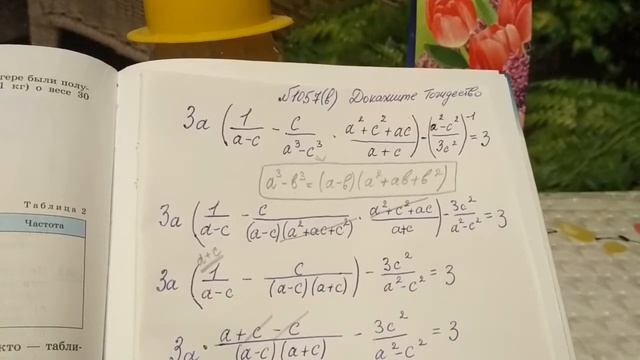 гере были полу-
1 кг) о весе 30
Таблица 2
Частота
кто — табли-
№1057(в) Докажите Тождество
3a (1/(a-c) - c/(a³-c³) · (a²+c²+ac)/(a+c)) - ((a²-c²)/(3c²))⁻¹ = 3
a³-b³=(a-b)(a²+ab+b²)
3a (1/(a-c) - c/((a-c)(a²+ac+c²)) · (a²+c²+ac)/(a+c)) - 3c²/(a²-c²) = 3
a+c
3a (1/(a-c) - c/((a-c)(a+c))) - 3c²/(a²-c²) = 3
3a · (a+c-c)/((a-c)(a+c)) - 3c²/(a²-c²) = 3